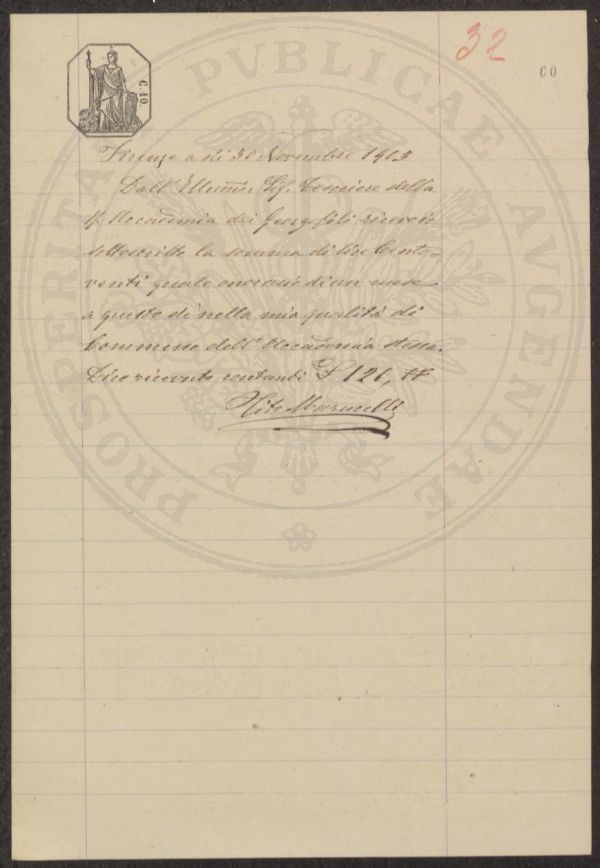 32
60
C. 10
PROSPERITATI PVBLICAE AVGENDAE
Firenze a dì 30 Novembre 1903
Dall' Illumo. Sig. Tesoriere della
R. Accademia dei Georgofili ricevo io
sottoscritto la somma di lire Cento-
venti quale onorario di un mese
a questo dì nella mia qualità di
Commesso dell' Accademia stessa.
Dico ricevute contanti £ 120,
Martinelli